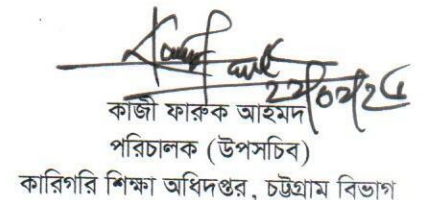 কাজী ফারুক আহমদ
পরিচালক (উপসচিব)
কারিগরি শিক্ষা অধিদপ্তর, চট্টগ্রাম বিভাগ